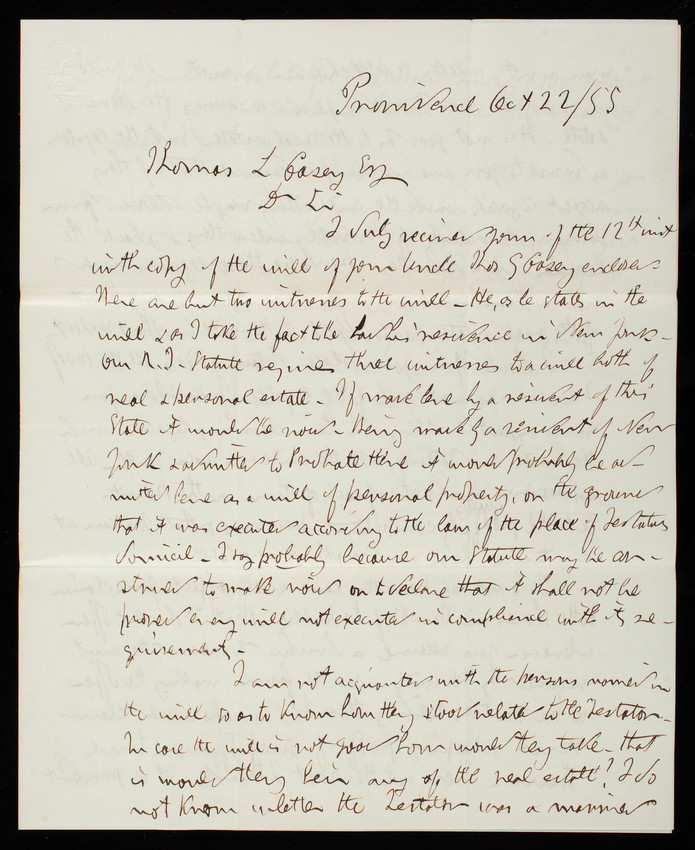 Providence Oct 22/55
Thomas L Casey Esq
Dr Sir
I duly received yours of the 12th inst
with copy of the will of your Uncle Thos G Casey enclosed
There are but two witnesses to the will - He, as he states in the
will & as I take the fact to be had his residence in New York -
Our R.I. Statute requires three witnesses to a will both of
real & personal estate - If made here by a resident of this
State it would be void - Being made by a resident of New
York & admitted to Probate there it would probably be ad-
mitted here as a will of personal property, on the ground
that it was executed according to the law of the place of Testators
domicil - I say probably because our Statute may be con-
strued to make void or to declare that it shall not be
proved every will not executed in compliance with its re-
quirements -
I am not acquainted with the persons named in
the will so as to know how they stood related to the Testator -
In case the will is not good how would they take - that
is would they heir any of the real estate? I do
not know whether the Testator was a married